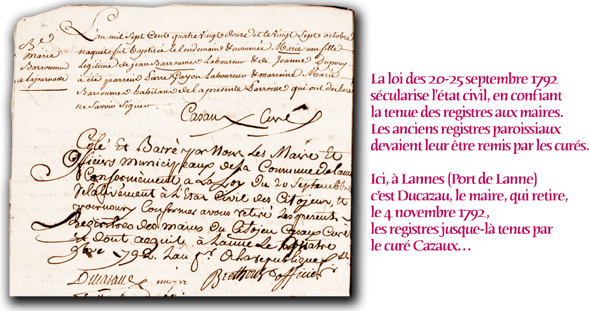 Bme
Marie
Barroumes
Lan mil sept Cent quatre vingt douze et le vingt Sept octobre
naquit fut Baptisée le lendemain et nommée Marie une fille
légitime de jean Barroumes Laboureur et de Jeanne Dupouy
a été parrein Pierre Gayon Laboureur et marreine Marie
Barroumes habitans de la présente Parroisse qui ont déclaré
ne savoir signer
Cazaux Curé
Coté et Barré par Nous Les Maire et
officiers municipeaux de la Commune de
Conformément a La Loy du 20 Septembre
relativement à l'État Civil des Citoyens, et
nous y Conformer avons retiré les présents
Registres des mains du Citoyen Cazaux Curé
et dont acquit, à Lanne Le quatre
9bre 1792. L'an 1er de la république
Ducazau maire Brethous officier
La loi des 20-25 septembre 1792
sécularise l'état civil, en confiant
la tenue des registres aux maires.
Les anciens registres paroissiaux
devaient leur être remis par les curés.
Ici, à Lannes (Port de Lanne)
c'est Ducazau, le maire, qui retire,
le 4 novembre 1792,
les registres jusque-là tenus par
le curé Cazaux...